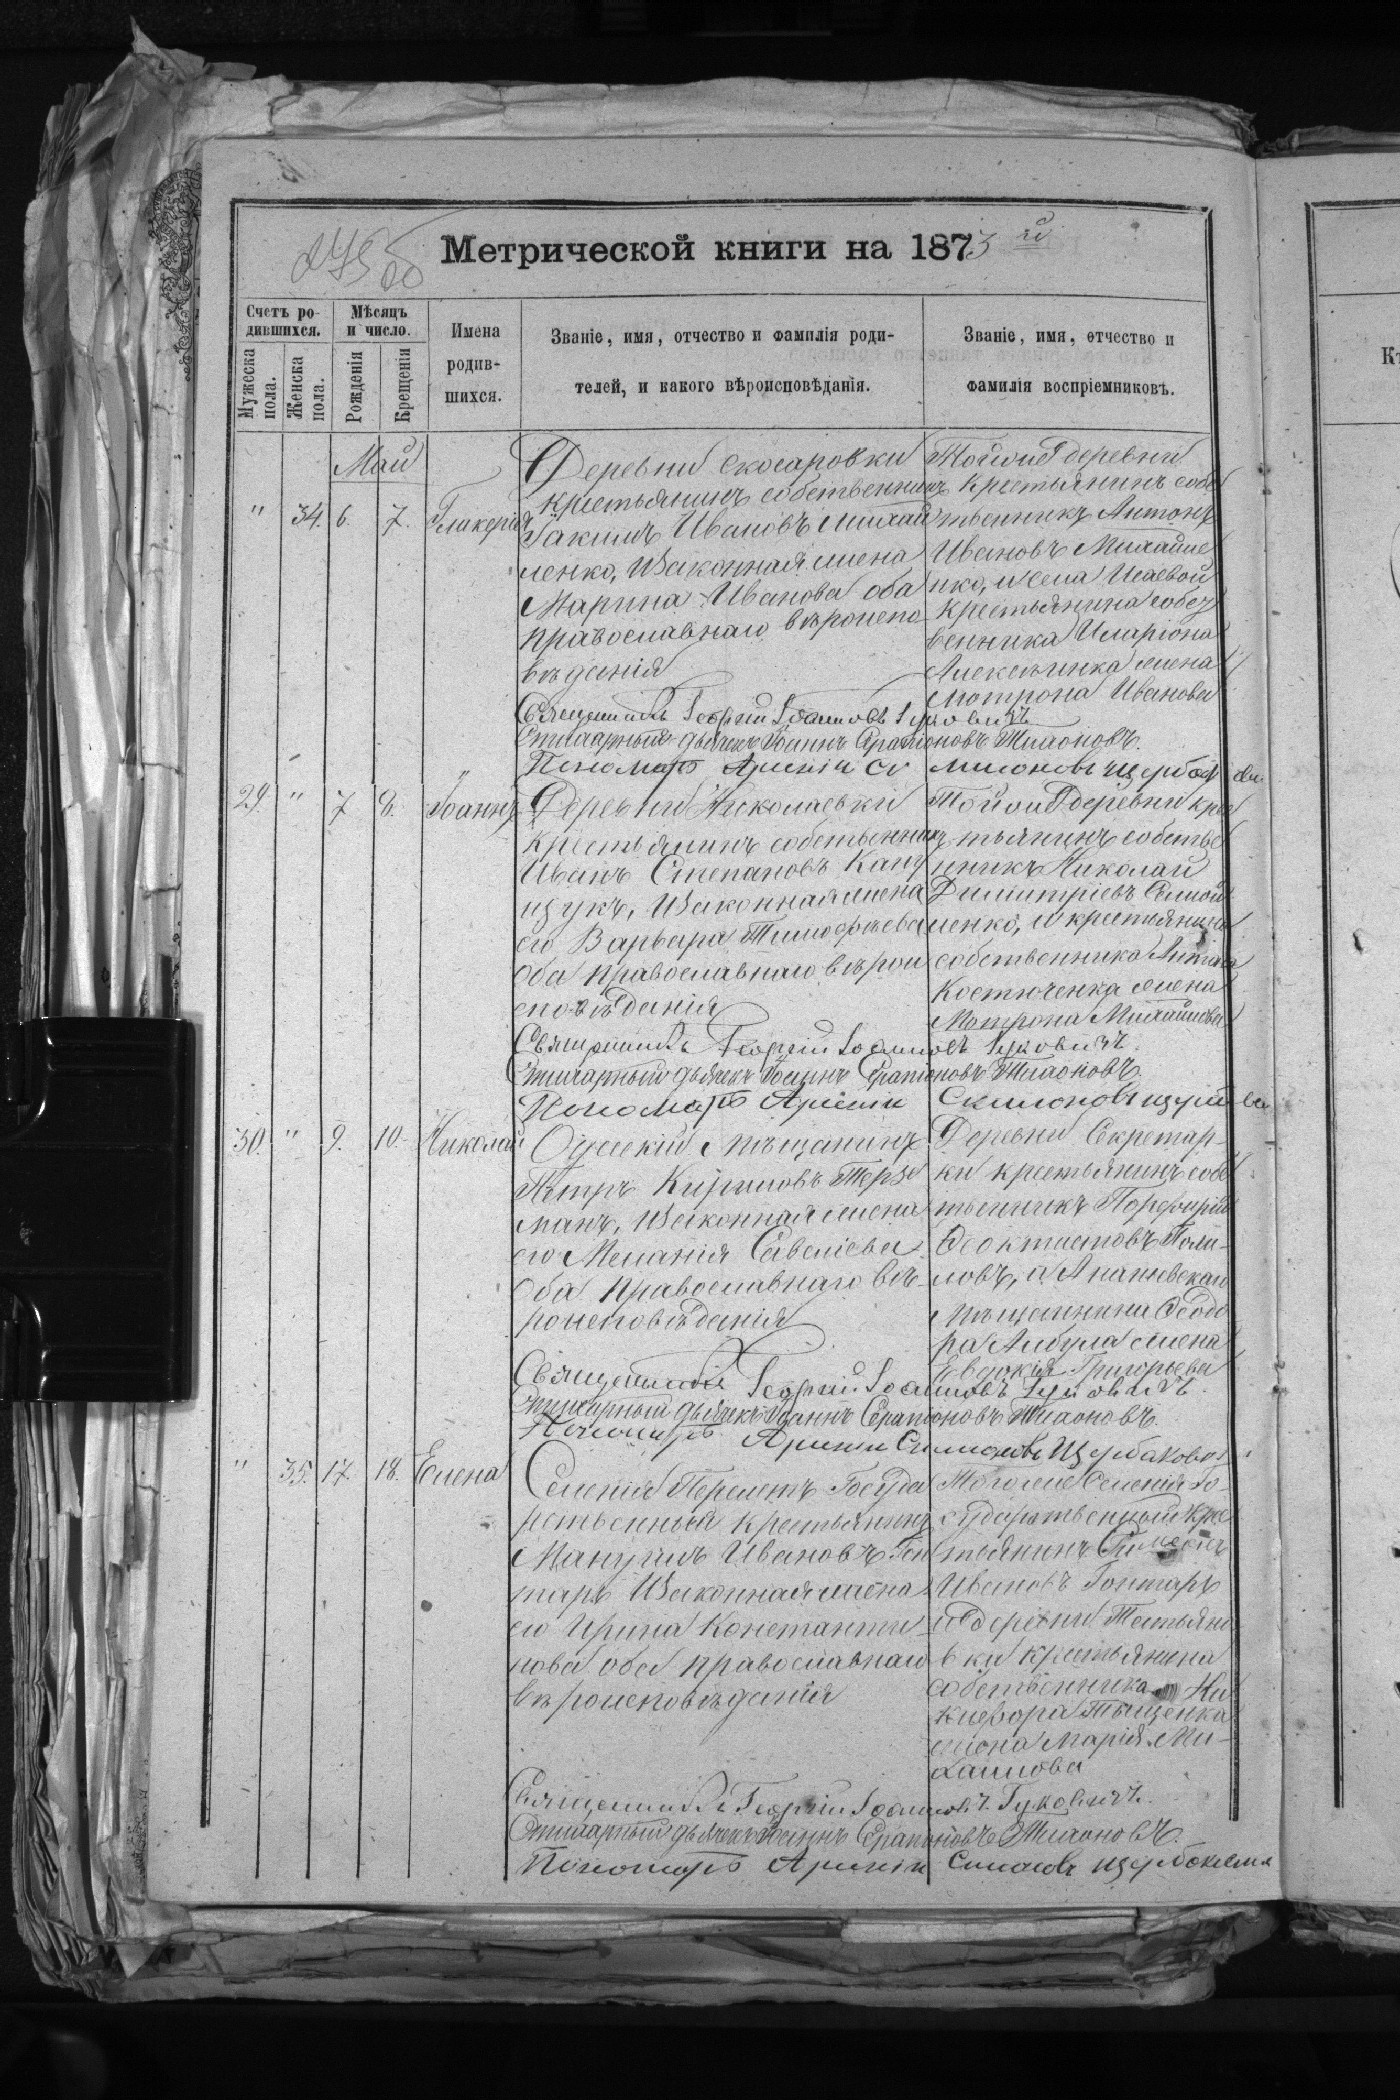 Метрической книги на 1873 й
Счетъ ро-
дившихся.
Мѣсяцъ
и число.
Мужеска
пола.
Женска
пола.
Рожденія
Крещенія
Имена
родив-
шихся.
Званіе, имя, отчество и фамилія роди-
телей, и какого вѣроисповѣданія.
Званіе, имя, отчество и
фамилія воспріемниковъ.
Май
" 34. 6. 7. Гликерія
Деревни Скосаровки
крестьянинъ собственникъ
Іакимъ Ивановъ Михай
ленко, Изаконная жена
Марина Иванова оба
православнаго вѣроиспо
вѣданія
Тойже деревни
крестьянинъ собс
твенникъ Антонъ
Ивановъ Михайле
нко, и села Исаевой
крестьянина собст
венника Иларіона
Алексѣинка жена
Мотрона Иванова
Священникъ Георгій Іоанновъ Гуковичъ
Эпитарный дьячекъ Іоаннъ Серапіоновъ Тихоновъ.
Пономарь Арсеній
29. " 7 8. Іоаннъ
Деревни Николаевки
крестьянинъ собственникъ
Иванъ Степановъ
Изаконная жена
его Варвара Тимофѣева
оба православнаго вѣрои
сповѣданія
Тойже деревни крес
тьянинъ собстве
нникъ Николай
Димитріевъ Самой
ленко, и крестьянина
собственника
Костюченка жена
Мотрона Михайлова
Священникъ Георгій Іоанновъ Гуковичъ.
Эпитарный дьячекъ Іоаннъ Серапіоновъ Тихоновъ.
Пономарь Арсеній
30. " 9. 10. Николай
Одесскій Мѣщанинъ
Петръ Кириловъ Терзи
манъ, Изаконная жена
его Меланія Савеліева
Оба православнаго вѣ-
роисповѣданія
Деревни Секретар-
ки крестьянинъ собс
твенникъ Порфирій
Феоктистовъ Поли-
ловъ, и Ананьевскаго
Мѣщанина Феодо
ра Албула жена
Евдокія Григорьева
Священникъ Георгій Іоанновъ Гуковичъ.
Эпитарный дьячекъ Іоаннъ Серапіоновъ Тихоновъ.
Пономарь Арсеній Симоновъ Щербаковъ
" 35. 17. 18. Елена
Селенія Перелетъ Госуда
рственный крестьянинъ
Мануилъ Ивановъ Гон
таръ Изаконная жена
его Ирина Константи
нова оба православнаго
вѣроисповѣданія
Тогоже Селенія Го-
сударственный крес
тьянинъ Симеонъ
Ивановъ Гонтаръ
и деревни Татьяно
вки крестьянина
собственника Ни
кифора Тищенка
жена Марія Ми-
хаилова
Священникъ Георгій Іоанновъ Гуковичъ.
Эпитарный дьячекъ Іоаннъ Серапіоновъ Тихоновъ.
Пономарь Арсеній Симоновъ